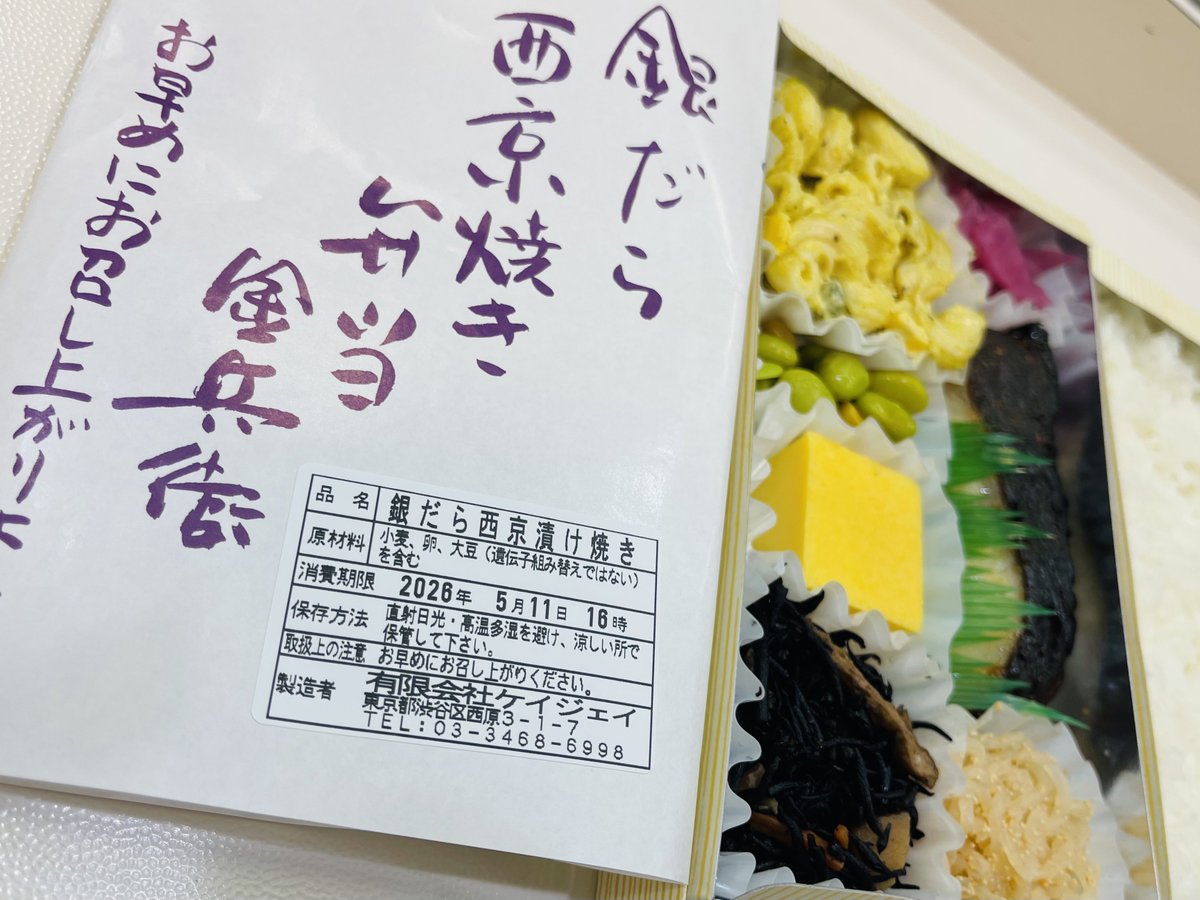 銀だら
西京焼き
弁当
金兵衛
お早めにお召し上がり
品名 銀だら西京漬け焼き
原材料 小麦、卵、大豆（遺伝子組み替えではない）
を含む
消費期限 2026年 5月11日 16時
保存方法 直射日光・高温多湿を避け、涼しい所で
保管して下さい。
取扱上の注意 お早めにお召し上がりください。
製造者 有限会社ケイジェイ
東京都渋谷区西原3-1-7
TEL:03-3468-6998